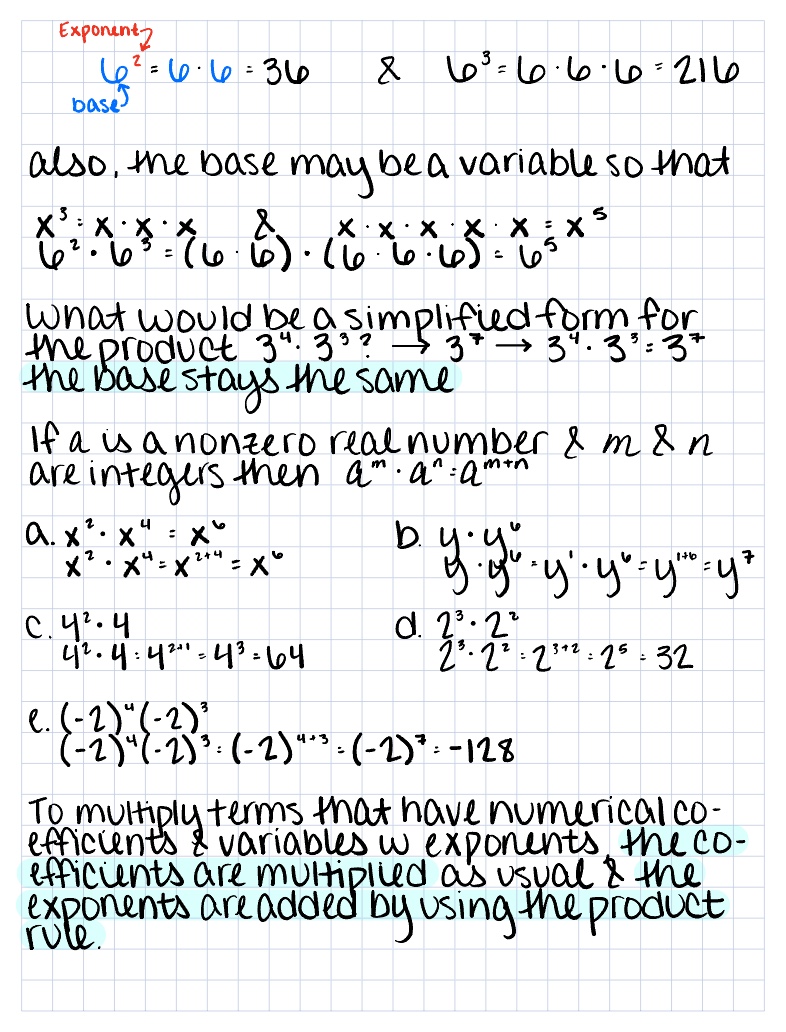 Exponent
6² = 6 · 6 = 36 & 6³ = 6 · 6 · 6 = 216
base
also, the base may be a variable so that
x³ = x · x · x & x · x · x · x · x = x⁵
6² · 6³ = (6 · 6) · (6 · 6 · 6) = 6⁵
What would be a simplified form for
the product 3⁴ · 3³ ? → 3⁷ → 3⁴ · 3³ = 3⁷
the base stays the same
If a is a nonzero real number & m & n
are integers then aᵐ · aⁿ = aᵐ⁺ⁿ
a. x² · x⁴ = x⁶ b. y · y⁶
x² · x⁴ = x²⁺⁴ = x⁶ y · y⁶ = y¹ · y⁶ = y¹⁺⁶ = y⁷
c. 4² · 4 d. 2³ · 2²
4² · 4 = 4²⁺¹ = 4³ = 64 2³ · 2² = 2³⁺² = 2⁵ = 32
e. (-2)⁴(-2)³
(-2)⁴(-2)³ = (-2)⁴⁺³ = (-2)⁷ = -128
To multiply terms that have numerical co-
efficients & variables w exponents, the co-
efficients are multiplied as usual & the
exponents are added by using the product
rule.